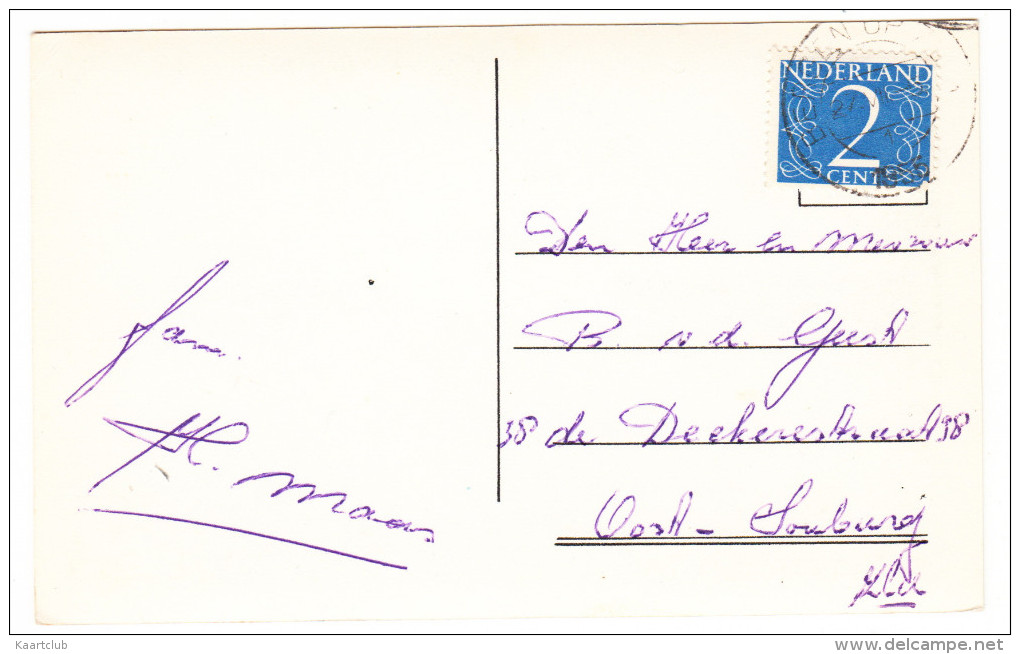 NEDERLAND
2
CENT
Den Heer en Mevrouw
P. v.d. Geest
38 de Deckerestraat 38
Oost-Souburg
Zld
Fam.
H. Maas
Kaartclub
www.delcampe.net